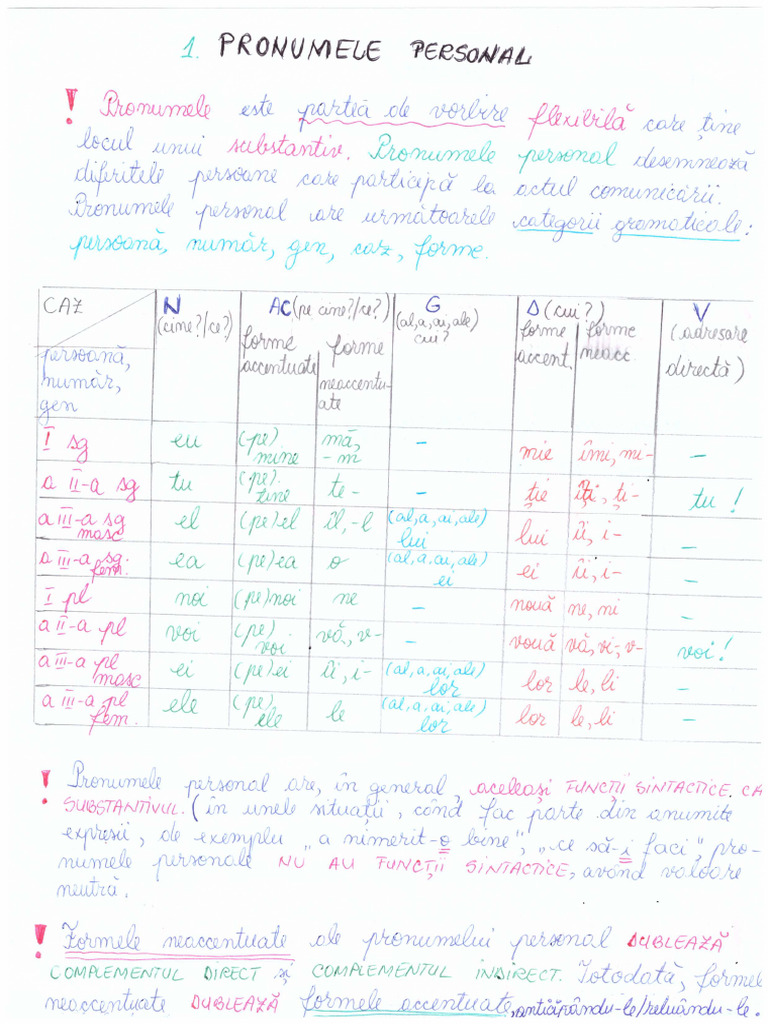 1. PRONUMELE PERSONAL
! Pronumele este partea de vorbire flexibilă care ține
locul unui substantiv. Pronumele personal desemnează
diferitele persoane care participă la actul comunicării.
Pronumele personal are următoarele categorii gramaticale:
persoană, număr, gen, caz, forme.
CAZ N AC (pe cine?/ce?) G D (cui?) V
(cine?/ce?) forme accentuate forme neaccentu-ate (al, a, ai, ale) cui? forme accent. forme neacc. (adresare directă)
persoană,
număr,
gen
I sg eu (pe) mine mă, -m - mie îmi, mi- -
a II-a sg tu (pe) tine te- - ție îți, ți- tu!
a III-a sg masc el (pe) el îl, -l (al, a, ai, ale) lui lui îi, i- -
a III-a sg. fem. ea (pe) ea o (al, a, ai, ale) ei ei îi, i- -
I pl noi (pe) noi ne - nouă ne, ni -
a II-a pl voi (pe) voi vă, v- - vouă vă, vi-, v- voi!
a III-a pl masc ei (pe) ei îi, i- (al, a, ai, ale) lor lor le, li -
a III-a pl fem. ele (pe) ele le (al, a, ai, ale) lor lor le, li -
! Pronumele personal are, în general, aceleași FUNCȚII SINTACTICE CA
SUBSTANTIVUL. (în unele situații, când fac parte din anumite
expresii, de exemplu „a nimerit-o bine", „ce să-i faci", pro-
numele personale NU AU FUNCȚII SINTACTICE, având valoare
neutră.
! Formele neaccentuate ale pronumelui personal DUBLEAZĂ
COMPLEMENTUL DIRECT și COMPLEMENTUL INDIRECT. Totodată, formele
neaccentuate DUBLEAZĂ formele accentuate, anticipându-le/reluându-le.